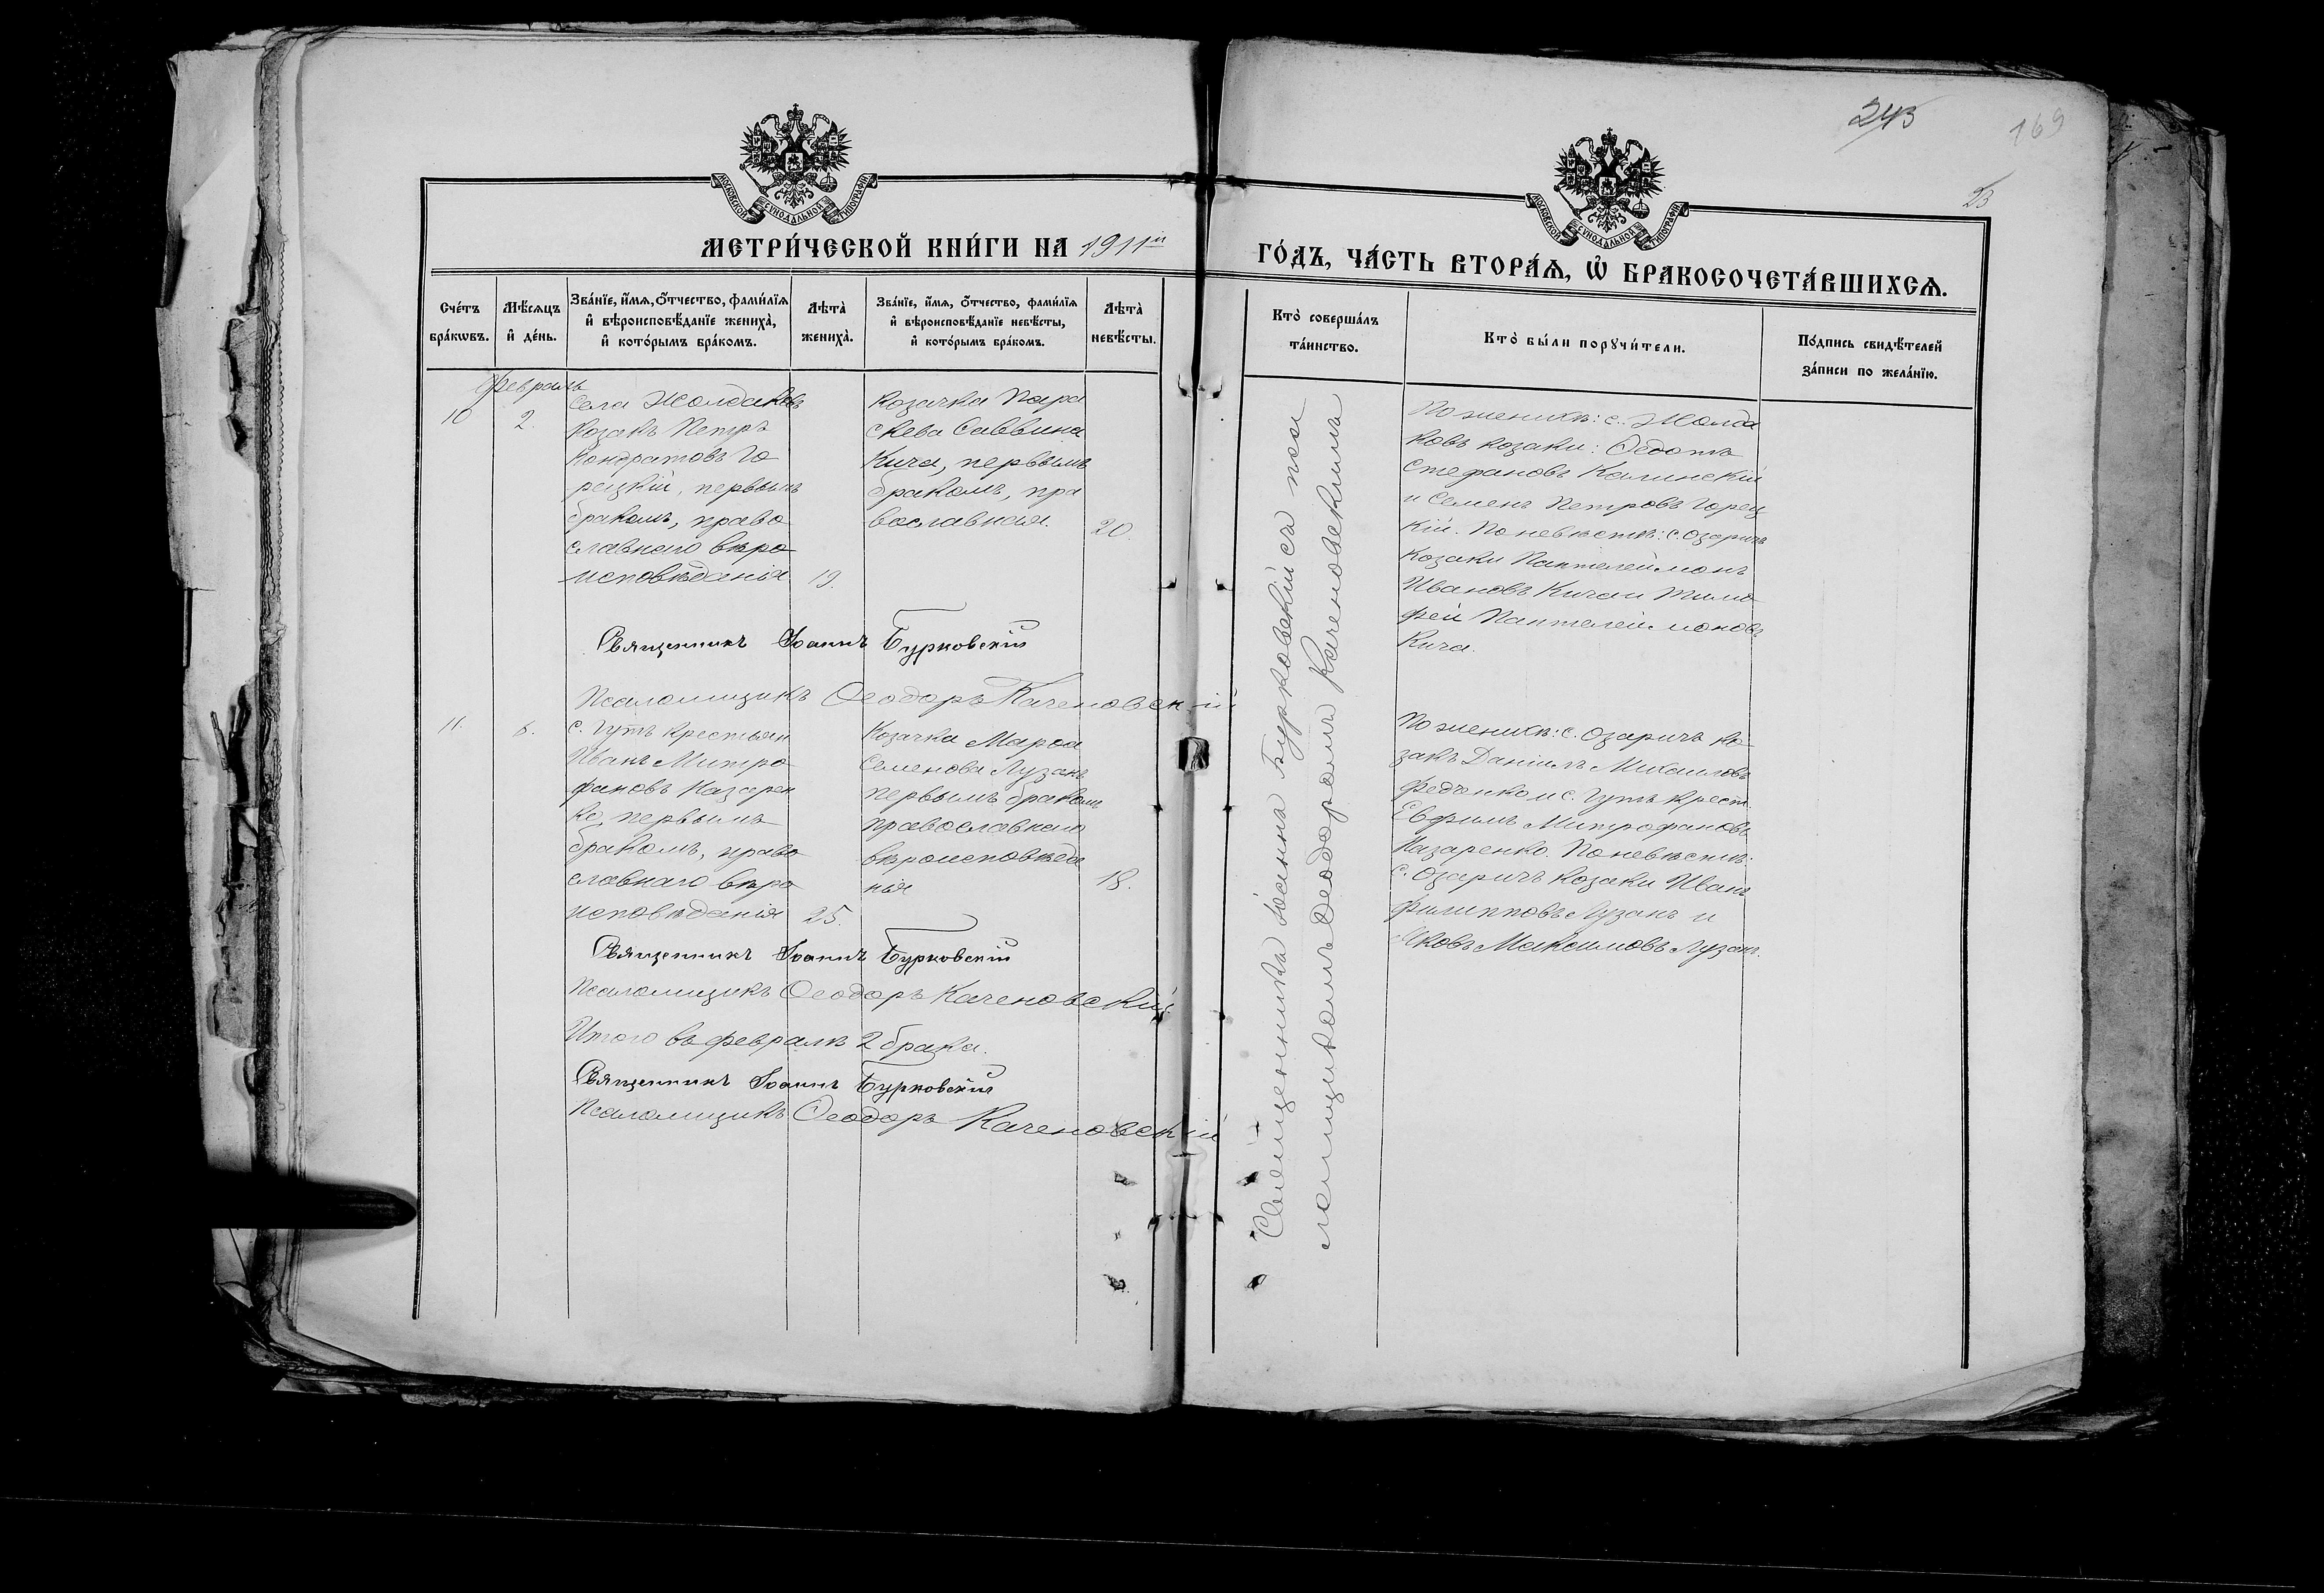 243
169
23
МОСКОВСКОЙ СѴНОДАЛЬНОЙ ТИПОГРАФІИ
МОСКОВСКОЙ СѴНОДАЛЬНОЙ ТИПОГРАФІИ
МЕТРИ́ЧЕСКОЙ КНИ́ГИ НА 1911й
ГО́ДЪ, ЧА́СТЬ ВТОРА́Ѧ, Ѽ БРАКОСОЧЕТА́ВШИХСѦ.
Сче́тъ
бра́кѡвъ.
Мѣ́сѧцъ
и҆ де́нь.
Зва́нїе, и҆́мѧ, ѻ҆́тчество, фами́лїѧ
и҆ вѣроисповѣ́данїе жениха̀,
и҆ кото́рымъ бра́комъ.
Лѣта̀
жениха̀.
Зва́нїе, и҆́мѧ, ѻ҆́тчество, фами́лїѧ
и҆ вѣроисповѣ́данїе невѣ́сты,
и҆ кото́рымъ бра́комъ.
Лѣта̀
невѣ́сты.
Кто̀ соверша́лъ
та́инство.
Кто̀ бы́ли порꙋчи́тели.
По́дпись свидѣ́телей
за́писи по жела́нїю.
Февраль
10
2.
Села Жолдаковъ
козакъ Петръ
Кондратовъ Го
рецкій, первымъ
бракомъ, право
славнаго вѣро
исповѣданія
19.
Козачка Пара
скева Саввина
Кича, первымъ
бракомъ, пра
вославная.
20.
Священника Іоаннъ Бурковскій съ пса
ломщикомъ Ѳеодоромъ Каченовскимъ
По женихѣ: с. Жолда
ковъ козаки: Ѳедотъ
Стефановъ Калинскій
и Семенъ Петровъ Горец
кій. По невѣстѣ: с. Озаричъ
козаки Пантелеймонъ
Ивановъ Кича и Тимо
фей Пантелеймоновъ
Кича.
Священникъ Іоаннъ Бурковскій
Псаломщикъ Ѳеодоръ Каченовскій
11.
6.
с. Гутъ крестьян
Иванъ Митро
фановъ Назарен
ко, первымъ
бракомъ, право
славнаго вѣро
исповѣданія
25.
Козачка Марѳа
Семенова Лузанъ
первымъ бракомъ
православнаго
вѣроисповѣда
нія
18.
По женихѣ: с. Озаричъ ко
закъ Даніилъ Михаиловъ
Федченко и с. Гутъ крест.
Евфимъ Митрофановъ
Назаренко. По невѣстѣ:
с. Озаричъ козаки Иванъ
Филипповъ Лузанъ и
Яковъ Максимовъ Лузанъ.
Священникъ Іоаннъ Бурковскій
Псаломщикъ Ѳеодоръ Каченовскій
Итого въ февралѣ 2 брака.
Священникъ Іоаннъ Бурковскій
Псаломщикъ Ѳеодоръ Каченовскій